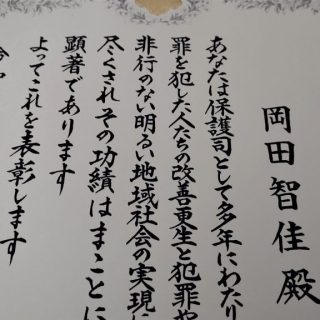 岡田智佳殿
あなたは保護司として多年にわたり
罪を犯した人たちの改善更生と犯罪や
非行のない明るい地域社会の実現に
尽くされその功績はまことに
顕著であります
よってこれを表彰します
令和